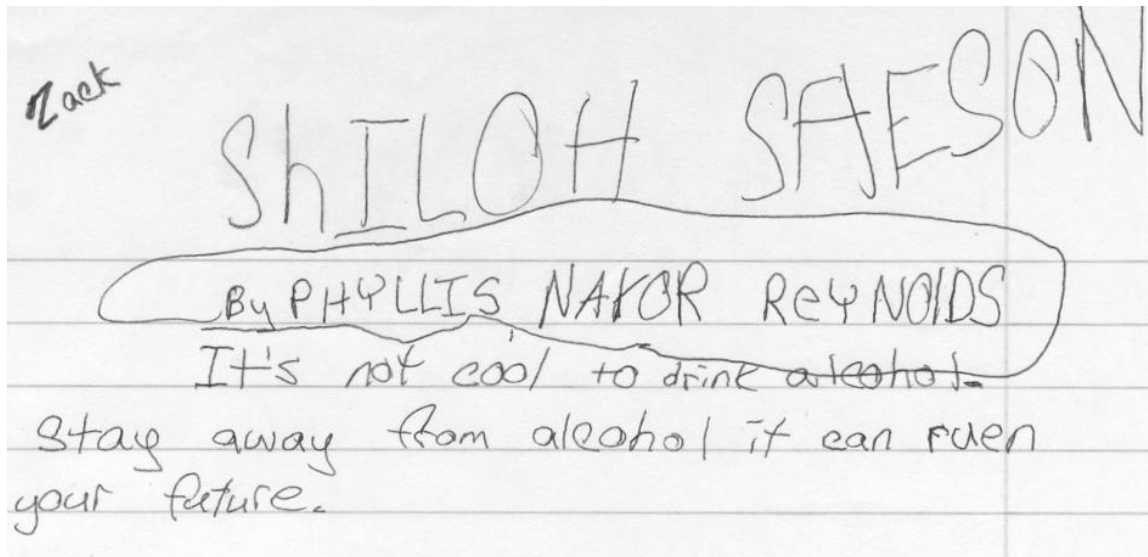 Zack
ShILOH SAESON
By PHYLLIS NAYOR REYNOlDS
It's not cool to drink alcohol.
Stay away from alcohol it can ruen
your future.